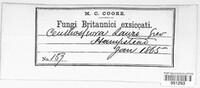 M. C. COOKE.
Fungi Britannici exsiccati.
Ceuthospora Lauri Grev
Hampstead
Jan 1865
No. 159
991293